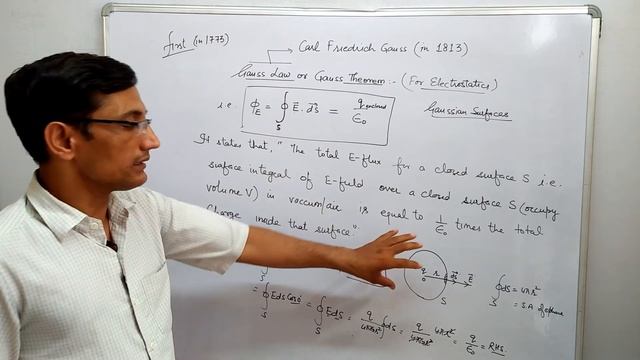 first (in 1773)
Carl Friedrich Gauss (in 1813)
Gauss Law or Gauss Theorem :- (For Electrostatics)
i.e. ϕ_E = ∮_S E⃗ · ds⃗ = q enclosed / ε₀
Gaussian Surfaces
It states that, "The total E-flux for a closed surface S i.e.
surface integral of E-field over a closed surface S (occupy
volume V) in vaccum/air is equal to 1/ε₀ times the total
charge inside that surface".
q r ds⃗ E⃗
o
S
∮_S ds = 4πr²
= S.A of sphere
= ∮_S Eds Cos0° = ∮_S Eds = q/4πε₀r² ∮ds = q/4πε₀r² 4πr² = q/ε₀ = RHS